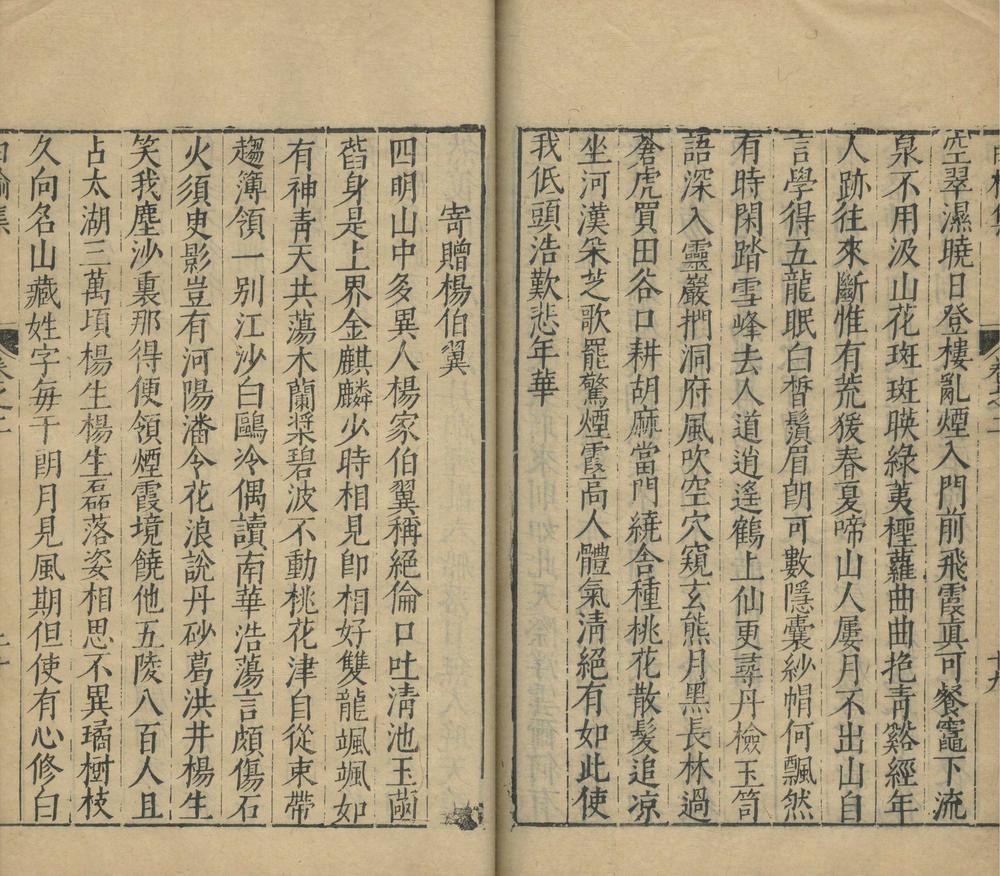 空翠濕曉日登樓亂煙入門前飛霞真可餐竈下流
泉不用汲山花斑斑暎綠荑檉蘿曲曲抱青谿經年
人跡往來斷惟有荒猨春夏啼山人屢月不出山自
言學得五龍眠白晳鬚眉朗可數隱囊紗帽何飄然
有時閑踏雪峰去人道逍遙鶴上仙更尋丹檢玉笥
語深入靈巖捫洞府風吹空穴窺玄熊月黑長林過
蒼虎買田谷口耕胡麻當門繞舍種桃花散髮追凉
坐河漢朵芝歌罷驚煙霞高人體氣清絕有如此使
我低頭浩歎悲年華
寄贈楊伯翼
四明山中多異人楊家伯翼稱絕倫口吐清池玉菡
萏身是上界金麒麟少時相見卽相好雙龍颯颯如
有神青天共蕩木蘭槳碧波不動桃花津自從束帶
趨簿領一別江沙白鷗冷偶讀南華浩蕩言頗傷石
火須臾影豈有河陽潘令花浪說丹砂葛洪井楊生
笑我塵沙裏那得便領煙霞境饒他五陵八百人且
占太湖三萬頃楊生楊生磊落姿相思不異璚樹枝
久向名山藏姓字每干朗月見風期但使有心修白
白榆集
卷之二